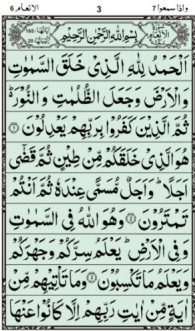 الانعام ٦ 3 واذا سمعوا ٧
بِسْمِ اللّٰهِ الرَّحْمٰنِ الرَّحِيْمِ
اَلْحَمْدُ لِلّٰهِ الَّذِيْ خَلَقَ السَّمٰوٰتِ
وَالْاَرْضَ وَجَعَلَ الظُّلُمٰتِ وَالنُّوْرَ ؕ
ثُمَّ الَّذِيْنَ كَفَرُوْا بِرَبِّهِمْ يَعْدِلُوْنَ ①
هُوَ الَّذِيْ خَلَقَكُمْ مِّنْ طِيْنٍ ثُمَّ قَضٰۤى
اَجَلًا ؕ وَاَجَلٌ مُّسَمًّى عِنْدَهٗ ثُمَّ اَنْتُمْ
تَمْتَرُوْنَ ② وَهُوَ اللّٰهُ فِي السَّمٰوٰتِ
وَفِي الْاَرْضِ ؕ يَعْلَمُ سِرَّكُمْ وَجَهْرَكُمْ
وَيَعْلَمُ مَا تَكْسِبُوْنَ ③ وَمَا تَاْتِيْهِمْ مِّنْ
اٰيَةٍ مِّنْ اٰيٰتِ رَبِّهِمْ اِلَّا كَانُوْا عَنْهَا